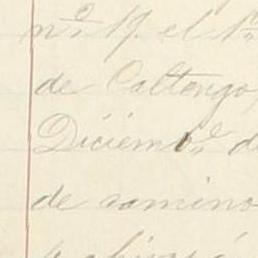 nº. 19. el 1º
de Caltengo,
Diciemb.e d
de camino